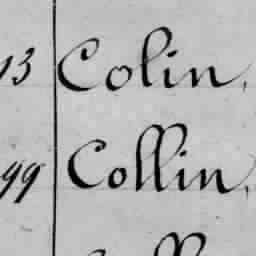 13 Colin,
99 Collin,